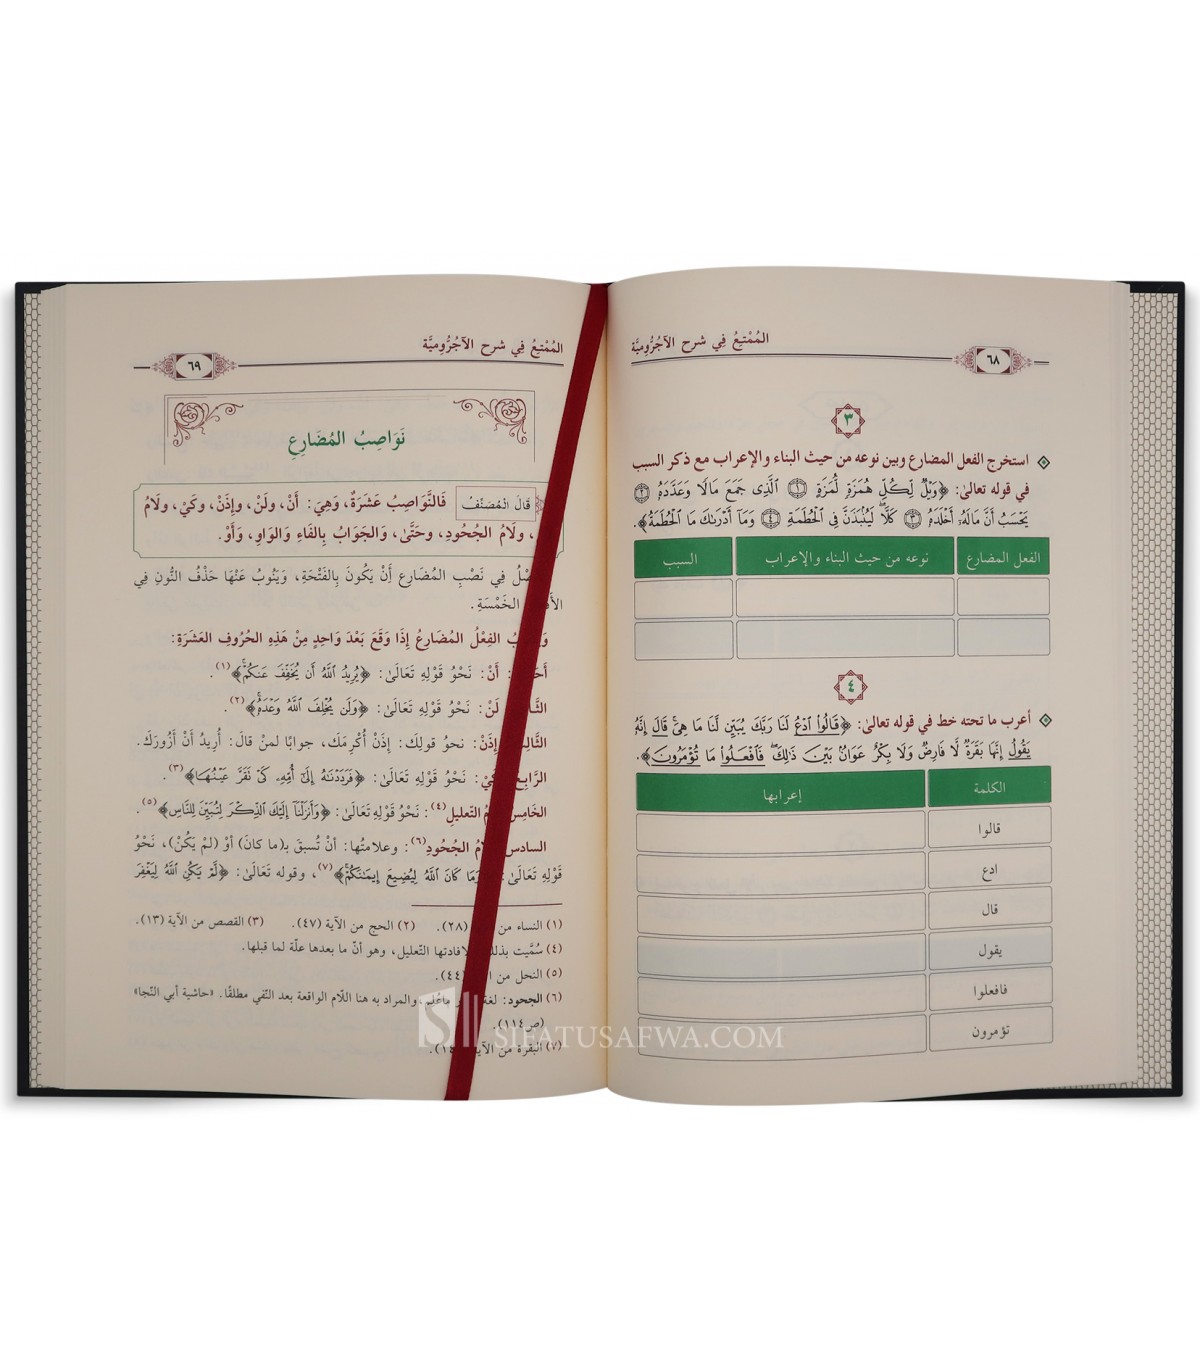 المُمْتِعُ فِي شرح الآجُرُّومِيَّة
٦٨
٣
استخرج الفعل المضارع وبين نوعه من حيث البناء والإعراب مع ذكر السبب
في قوله تعالىٰ: ﴿وَيْلٌ لِّكُلِّ هُمَزَةٍ لُّمَزَةٍ ١ الَّذِى جَمَعَ مَالًا وَعَدَّدَهُ ٢
يَحْسَبُ أَنَّ مَالَهُ أَخْلَدَهُ ٣ كَلَّا لَيُنۢبَذَنَّ فِى الْحُطَمَةِ ٤ وَمَا أَدْرَىٰكَ مَا الْحُطَمَةُ﴾.
الفعل المضارع نوعه من حيث البناء والإعراب السبب
٤
أعرب ما تحته خط في قوله تعالىٰ: ﴿قَالُوا۟ ادْعُ لَنَا رَبَّكَ يُبَيِّن لَّنَا مَا هِىَ قَالَ إِنَّهُ
يَقُولُ إِنَّهَا بَقَرَةٌ لَّا فَارِضٌ وَلَا بِكْرٌ عَوَانٌ بَيْنَ ذَٰلِكَ فَافْعَلُوا۟ مَا تُؤْمَرُونَ﴾.
الكلمة إعرابها
قالوا
ادع
قال
يقول
فافعلوا
تؤمرون
المُمْتِعُ فِي شرح الآجُرُّومِيَّة
٦٩
نَوَاصِبُ المُضَارِعِ
قَالَ المُصَنِّفُ فَالنَّوَاصِبُ عَشَرَةٌ، وَهِيَ: أَنْ، وَلَنْ، وإِذَنْ، وكَيْ، ولَامُ
، ولَامُ الجُحُودِ، وحَتَّىٰ، وَالجَوَابُ بِالفَاءِ وَالوَاوِ، وَأَوْ.
فِي نَصْبِ المُضَارِعِ أَنْ يَكُونَ بِالفَتْحَةِ، وَيَنُوبُ عَنْهَا حَذْفُ النُّونِ فِي
الخَمْسَةِ.
الفِعْلُ المُضَارِعُ إِذَا وَقَعَ بَعْدَ وَاحِدٍ مِنْ هَذِهِ الحُرُوفِ العَشَرَةِ:
أَنْ: نَحْوُ قَوْلِهِ تَعَالَىٰ: ﴿يُرِيدُ اللَّهُ أَن يُخَفِّفَ عَنكُمْ﴾(١).
لَنْ: نَحْوُ قَوْلِهِ تَعَالَىٰ: ﴿وَلَن يُخْلِفَ اللَّهُ وَعْدَهُ﴾(٢).
إِذَنْ: نحوُ قولِكَ: إِذَنْ أُكْرِمَكَ، جوابًا لمنْ قالَ: أُرِيدُ أَنْ أَزُورَكَ.
الرَّابِعُ كَيْ: نَحْوُ قَوْلِهِ تَعَالَىٰ: ﴿فَرَدَدْنَٰهُ إِلَىٰ أُمِّهِ كَىْ تَقَرَّ عَيْنُهَا﴾(٣).
الخَامِسُ التعليلِ(٤): نَحْوُ قَوْلِهِ تَعَالَىٰ: ﴿وَأَنزَلْنَا إِلَيْكَ الذِّكْرَ لِتُبَيِّنَ لِلنَّاسِ﴾(٥).
السادس الجُحُودِ(٦): وعلامتُها: أنْ تُسبقَ بـ(ما كانَ) أوْ (لمْ يَكُنْ)، نَحْوُ
قَوْلِهِ تَعَالَىٰ: ﴿وَمَا كَانَ اللَّهُ لِيُضِيعَ إِيمَٰنَكُمْ﴾(٧)، وقوله تَعَالَىٰ: ﴿لَمْ يَكُنِ اللَّهُ لِيَغْفِرَ
(١) النساء من (٢٨). (٢) الحج من الآية (٤٧). (٣) القصص من الآية (١٣).
(٤) سُمِّيت بذلك لإفادتها التّعليل، وهو أنّ ما بعدها علّة لما قبلها.
(٥) النحل من (٤٤).
(٦) الجحود: لغة ما عُلم، والمراد به هنا اللّام الواقعة بعد النّفي مطلقًا. «حاشية أبي النّجا»
(ص١١٤).
(٧) البقرة من الآية
SIFATUSAFWA.COM